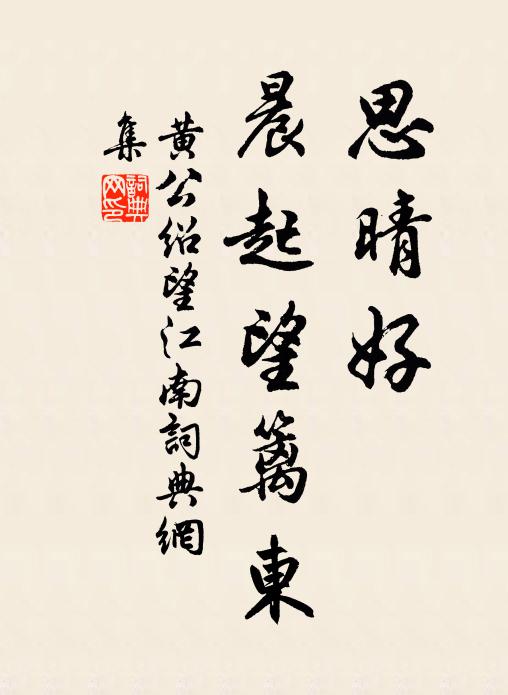 思晴好
晨起望篱東
黃公绍望江南詞典網
集
詞典网印